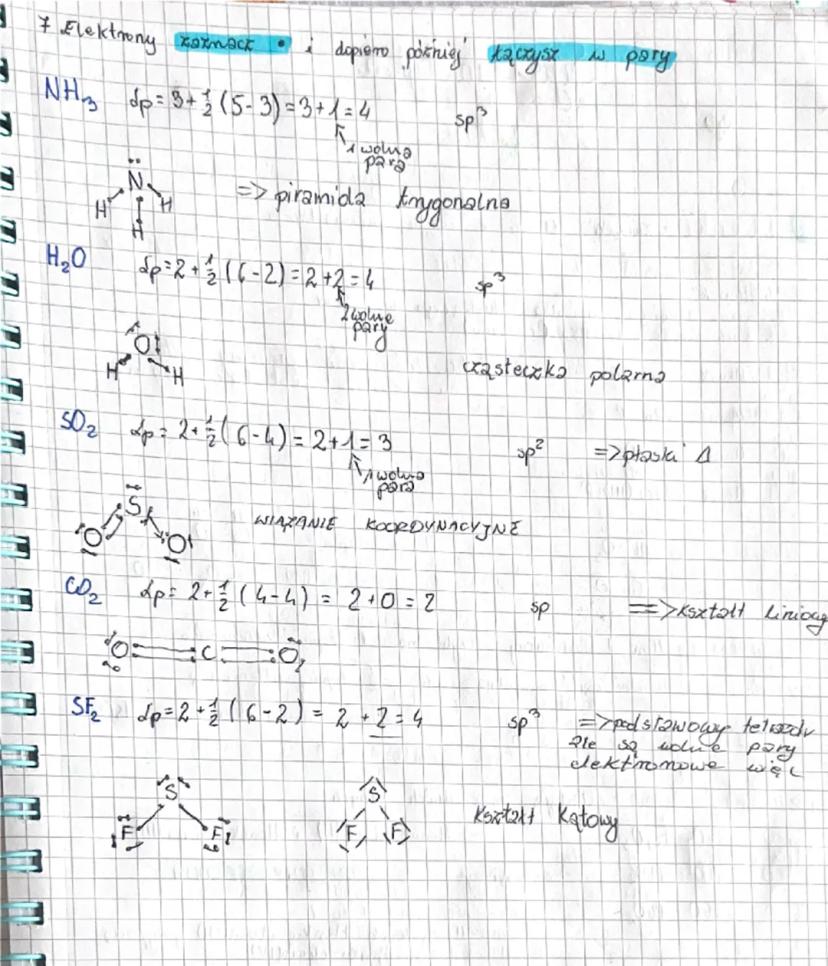 7 Elektrony zaznacz • i dopiero później łączysz w pary
NH₃ Lp = 3 + ½ (5 - 3) = 3 + 1 = 4 sp³
1 wolna
para
N
H H
H
=> piramida trygonalna
H₂O Lp = 2 + ½ (6 - 2) = 2 + 2 = 4 sp³
2 wolne
pary
O
H H
cząsteczka polarna
SO₂ Lp = 2 + ½ (6 - 4) = 2 + 1 = 3 sp² => płaski Δ
1 wolna
para
S
O O
WIĄZANIE KOORDYNACYJNE
CO₂ Lp = 2 + ½ (4 - 4) = 2 + 0 = 2 sp => kształt liniowy
O = C = O
SF₂ Lp = 2 + ½ (6 - 2) = 2 + 2 = 4 sp³ => podstawowy tetraedr
ale są wolne pary
elektronowe więc
S S
F F F F
kształt kątowy